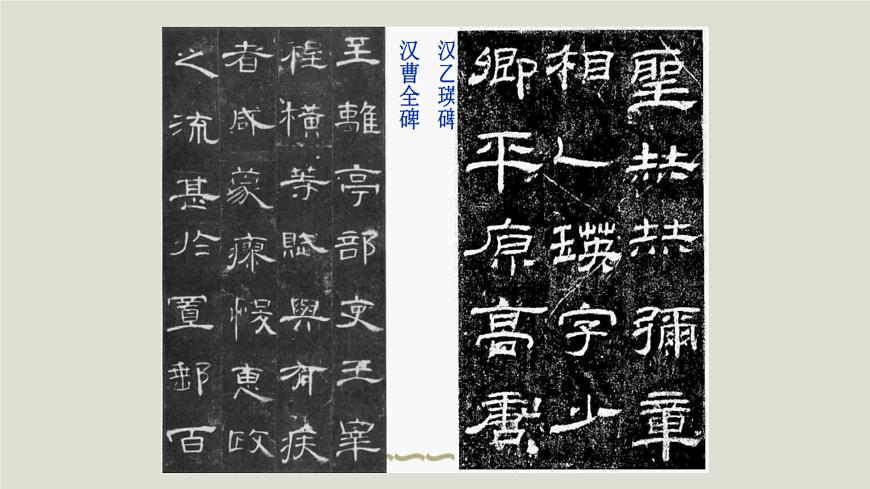 聖赫赫彌章
相乙瑛字少
卿平原高唐
汉乙瑛碑
汉曹全碑
至離亭部吏王宰
程橫等賦與有疾
者咸蒙瘳悛惠政
之流甚於置郵百